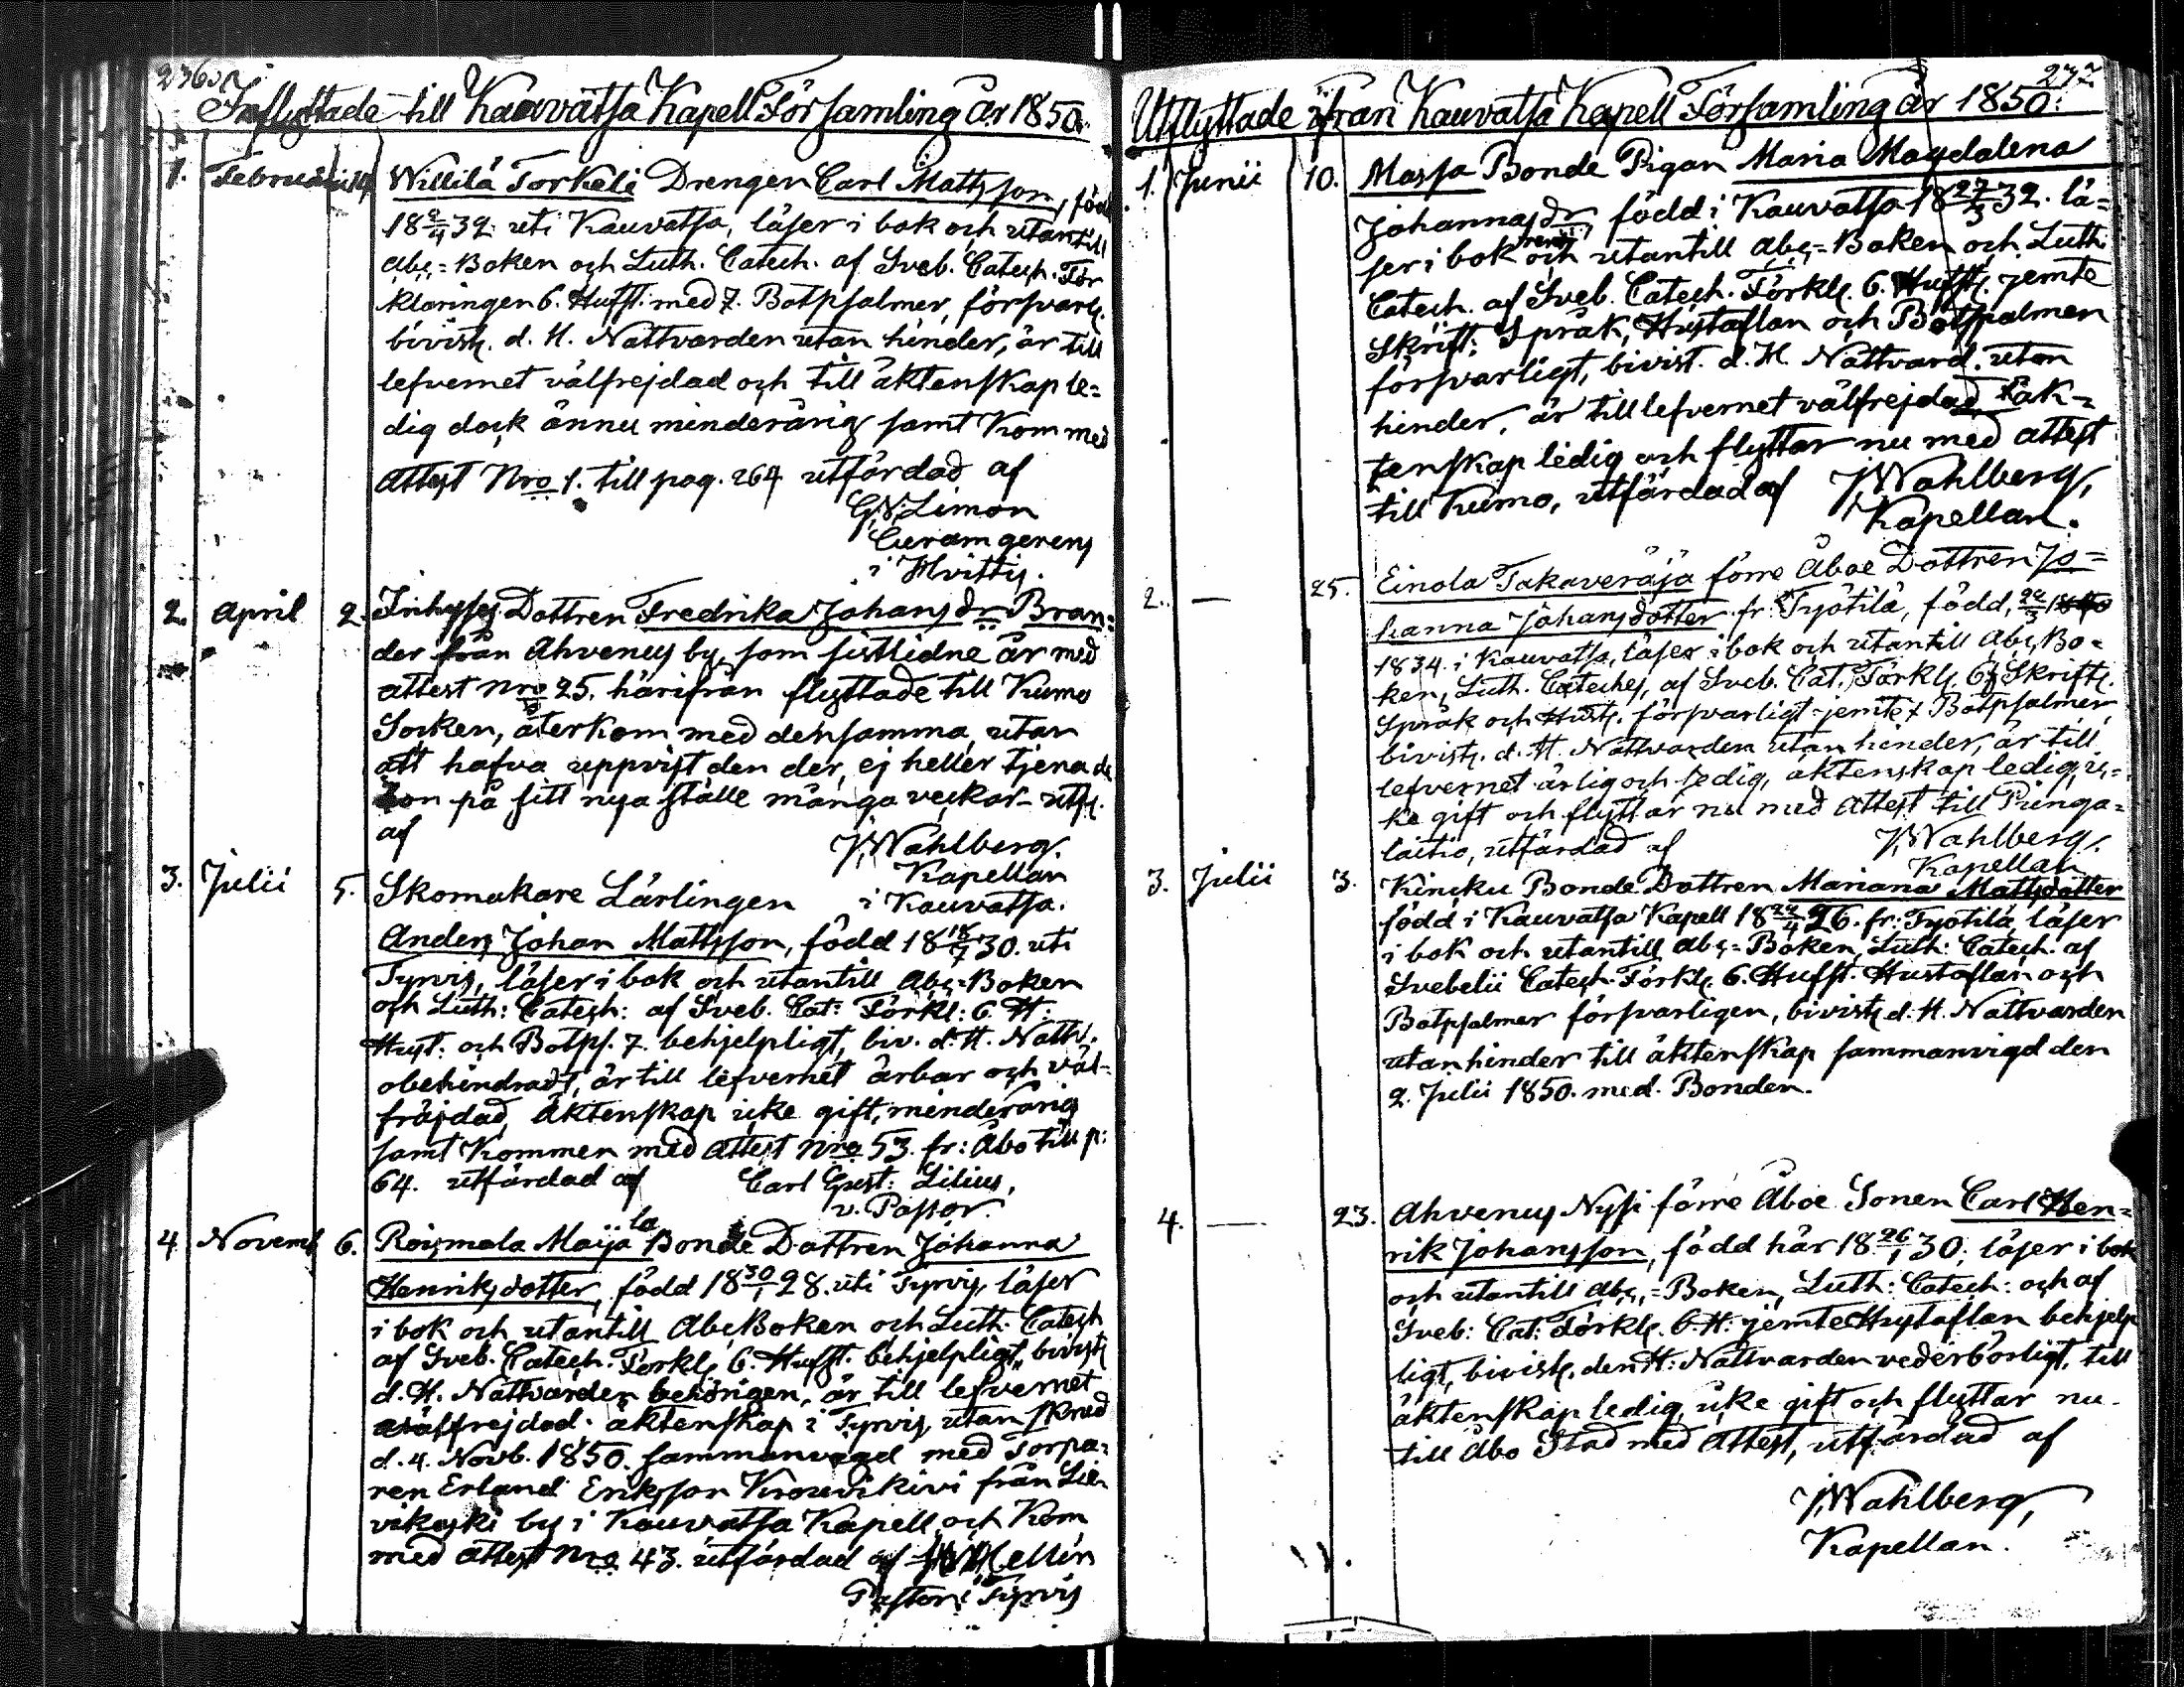 Inflyttade till Kauvatsa Kapell Församling år 1850.
1. Februarii 14. Willilä Torkeli Drengen Carl Mattsson, född
18 2/4 32. uti Kauvatsa, läser i bok och utantill
abc=Boken och Luth. Catech. af Sveb. Catech. För
klaringen 6. Hufst. med 7. Botpsalmer, försvarl.
bivist. d. H. Nattvarden utan hinder, är till
lefvernet välfrejdad och till äktenskap le=
dig dock ännu minderårig samt Kom med
Attest Nro 1. till pag. 264 utfärdad af
G. N. Limon
Curam gerens
i Hvittis.
2. April 2. Inhyses Dottren Fredrika Johans dr Bran=
der från Ahvenus by, som sistlidne år med
attest Nro 25. härifrån flyttade till Kumo
Socken, återkom med densamma, utan
att hafva uppvist den der, ej heller tjenade
hon på sitt nya ställe många veckor - utf.
af J. Wahlberg.
Kapellan
i Kauvatsa.
3. Julii 5. Skomakare Lärlingen
Anders Johan Mattsson, född 18 18/7 30. uti
Tyrvis, läser i bok och utantill Abc=Boken
och Luth: Catech: af Sveb. Cat: Förkl: 6. H:
Hust: och Botps. 7. behjelpligt, biv. d. H. Nattv.
obehindradt, är till lefvernet ärbar och väl=
fräjdad, äktenskap icke gift, minderårig
samt Kommen med Attest Nro 53. fr: Åbo till p:
64. utfärdad af Carl Gust: Lilius,
v. Pastor.
4 Novemb 6. Roismala Maijala Bonde Dottren Johanna
Henriksdotter, född 18 30/1 28. uti Tyrvis, läser
i bok och utantill Abc Boken och Luth. Catech
af Sveb. Catech. Förkl. 6. Hufst. behjelpligt, bivist.
d. H. Nattvarden behörigen, är till lefvernet
välfrejdad. äktenskap i Tyrvis utan
d. 4. Novb. 1850. sammanvigd med Torpa=
ren Erland Eriksson från
by i Kauvatsa Kapell och Kom
med attest Nro 43. utfärdad af
Pastor i Tyrvis
272
Utflyttade ifrån Kauvatsa Kapell Församling år 1850:
1. Junii 10. Massa Bonde Pigan Maria Magdalena
Johannas dr, född i Kauvatsa 18 27/3 32. lä=
ser i bok rent och utantill abc=Boken och Luth
Catech. af Sveb. Catech. Förkl. 6. Hufst. jemte
Skrift: Språk, Hustaflan och Botpsalmen
försvarligt, bivist. d. H. Nattvard. utan
hinder, är till lefvernet välfrejdad t. äk=
tenskap ledig och flyttar nu med attest
till Kumo, utfärdad af J. Wahlberg,
Kapellan.
2. — 25. Einola Takaveräjä förre Åboe Dottren Jo=
hanna Johansdotter fr: Työtilä, född,
1834. i Kauvatsa, läser i bok och utantill Abc, Bo=
ken, Luth. Cateches, af Sveb. Cat. Förkl. 6 Skrift.
Språk och Hust. försvarligt jemte 7 Botpsalmer,
bivist. d. H. Nattvarden utan hinder, är till
lefvernet ärlig och äktenskap ledig, ic=
ke gift och flyttar nu med Attest till Punga=
laitio, utfärdad af J. Wahlberg.
Kapellan
3. Julii 3. Kincku Bonde Dottren Mariana Mattsdotter
född i Kauvatsa Kapell 18 24/4 26. fr: Työtilä, läser
i bok och utantill Abc=Boken, Luth: Catech. af
Svebelii Catech. Förkl. 6. Hufst. Hustaflan och
Botpsalmer försvarligen, bivist. d. H. Nattvarden
utan hinder till äktenskap sammanvigd den
2. Julii 1850. med. Bonden.
4. — 23. Ahvenus Nyssi förre Åboe Sonen Carl Hen=
rik Johansson, född här 18 26/1 30. läser i bok
och utantill Abc,=Boken, Luth: Catech: och af
Sveb: Cat: Förkl. 6. H: jemte Hustaflan behjelp
ligt, bivist. den H: Nattvarden vederbörligt, till
äktenskap ledig, icke gift och flyttar nu
till Åbo Stad med Attest, utfärdad af
J. Wahlberg,
Kapellan.